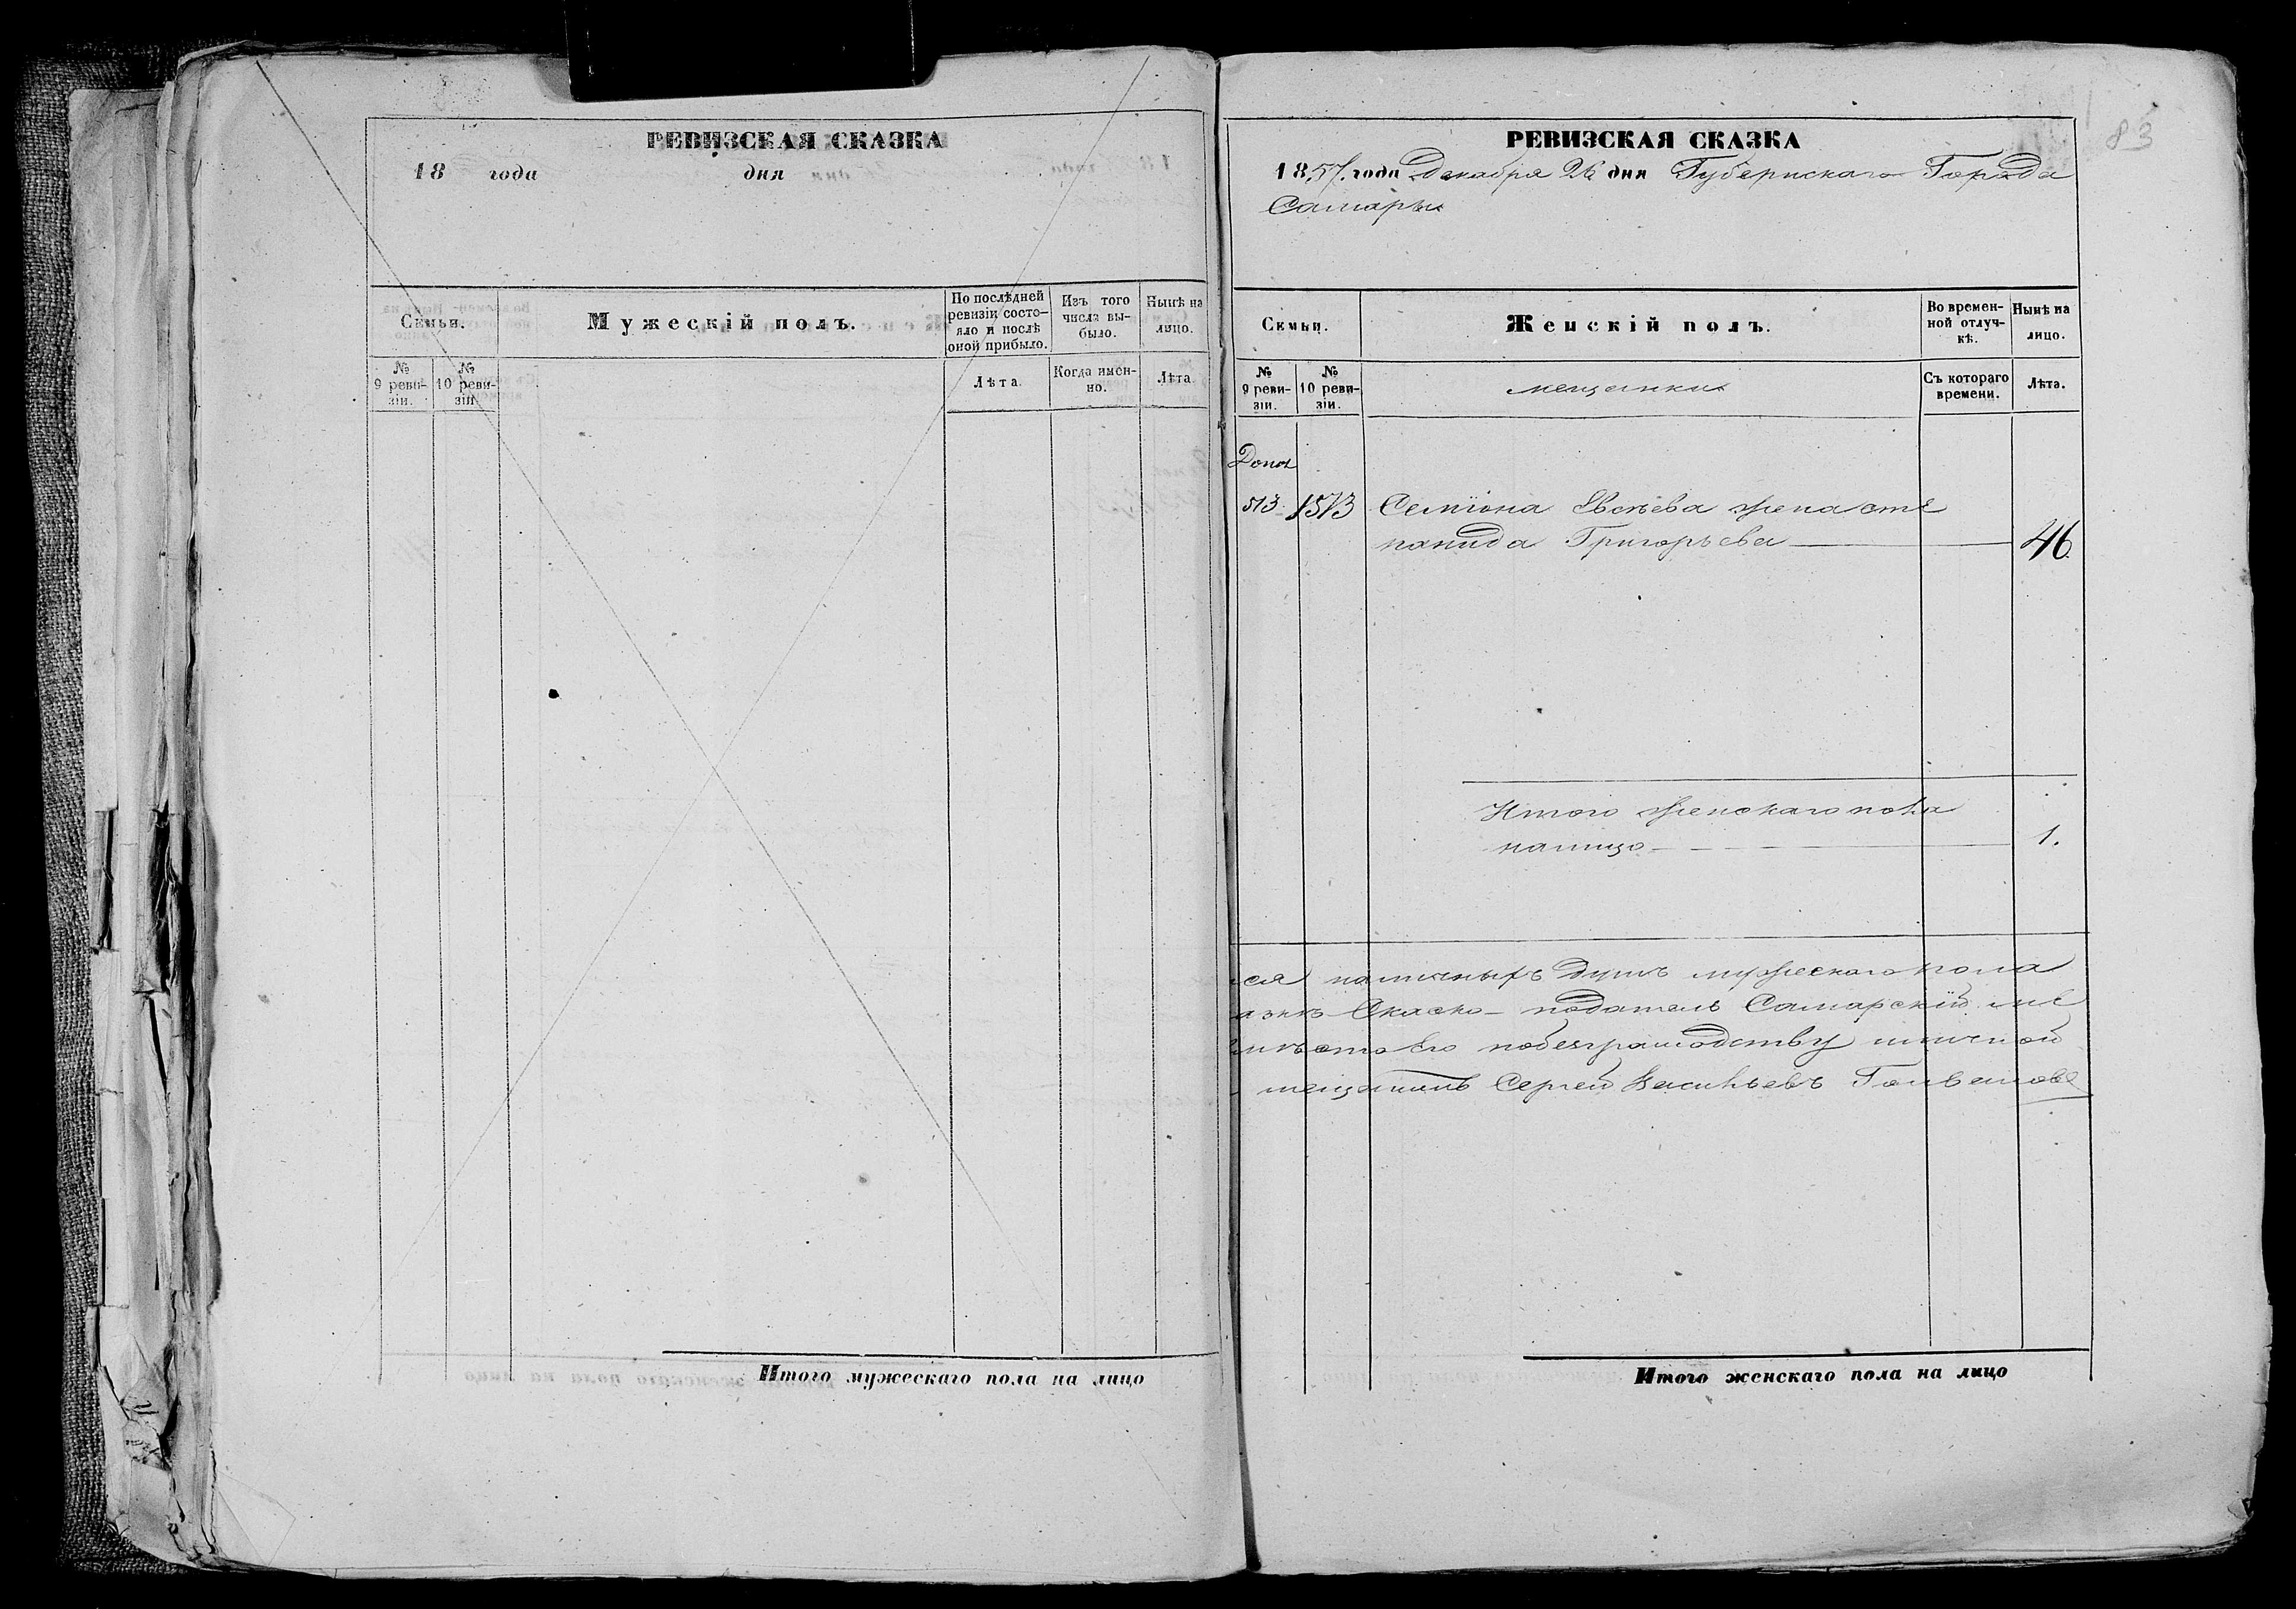 РЕВИЗСКАЯ СКАЗКА
18 года дня
Семьи.
Мужескій полъ.
По послѣдней ревизіи состо-яло и послѣ оной прибыло.
Изъ того числа вы-было.
Нынѣ на лицо.
№ 9 реви-зіи.
№ 10 реви-зіи.
Лѣта.
Когда имен-но.
Лѣта.
Итого мужескаго пола на лицо
83
РЕВИЗСКАЯ СКАЗКА
1857 года Декабря 26 дня Губернскаго Города
Самары
Семьи.
Женскій полъ.
Во времен-ной отлуч-кѣ.
Нынѣ на лицо.
№ 9 реви-зіи.
№ 10 реви-зіи.
мещанки
Съ котораго времени.
Лѣта.
Допол
513 1573 Семіона Евсѣева жена сте
панида Григорьева 46.
Итого женскаго пола
налицо 1.
ся наличныхъ душъ мужескаго пола
Сказко-податель Самарскій ме
его побезграмотству личной
мещанинъ Сергей Васильевъ
Итого женскаго пола на лицо